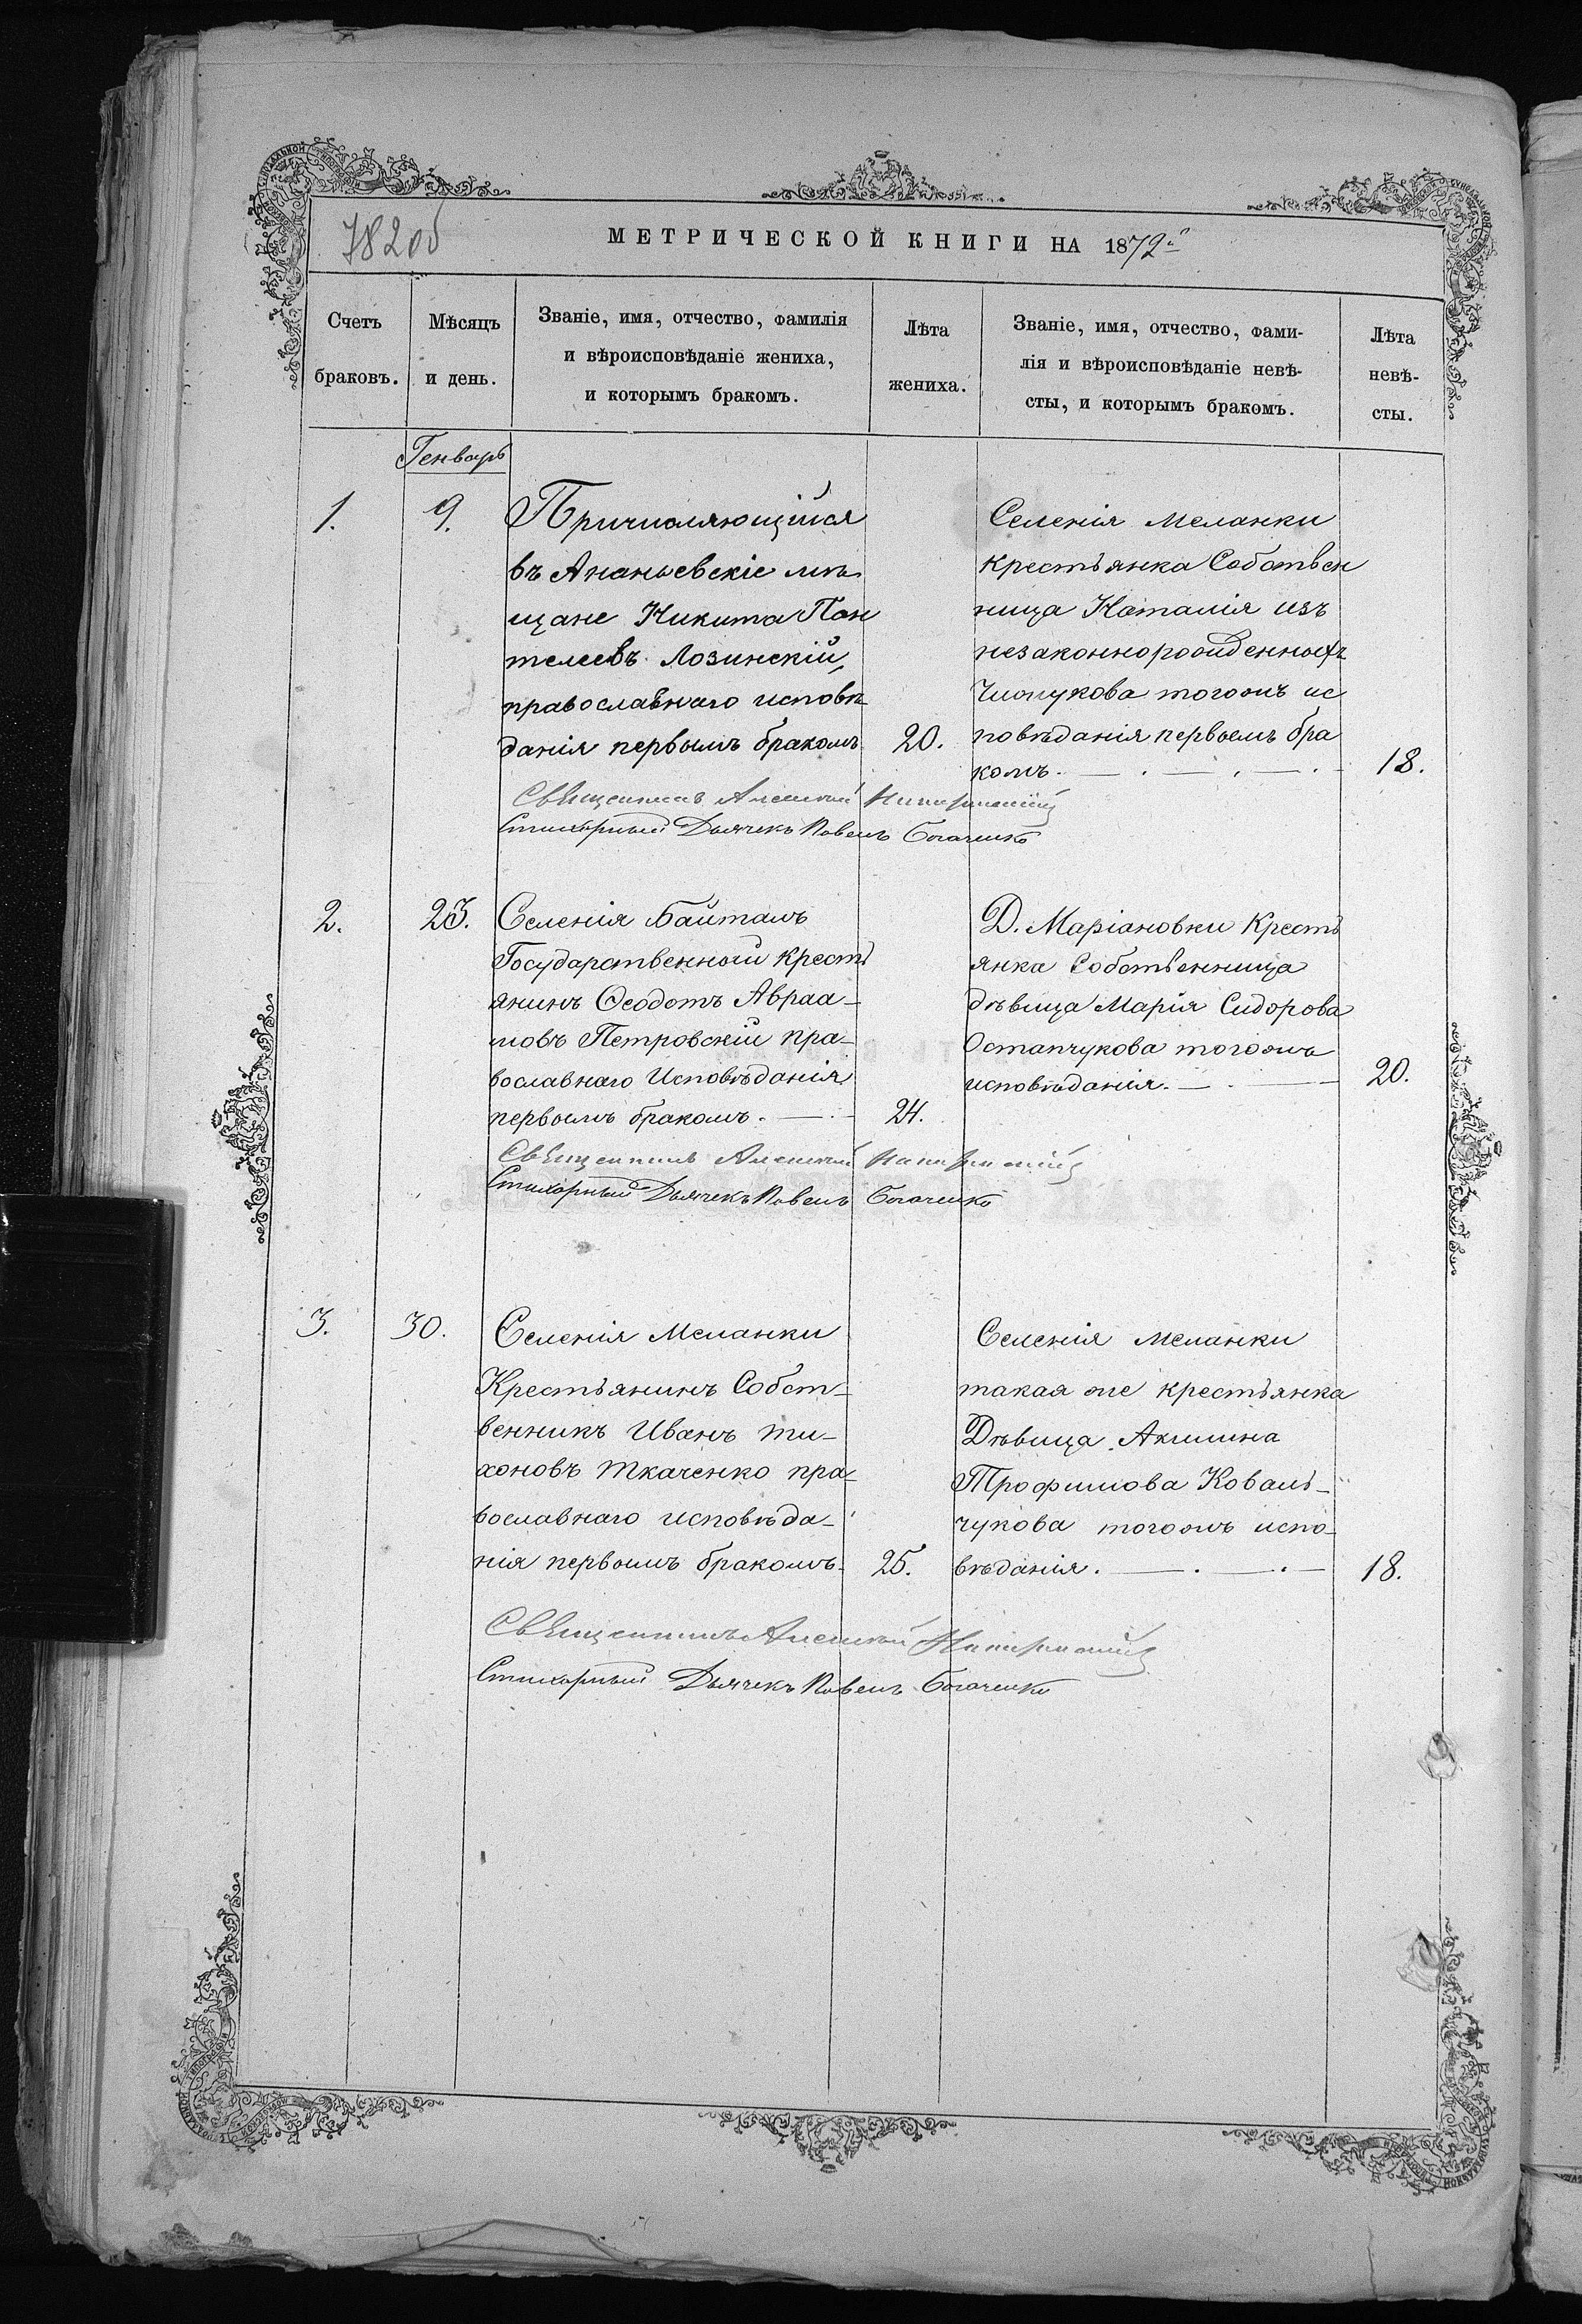 782об
МЕТРИЧЕСКОЙ КНИГИ НА 1872й
Счетъ
браковъ.
Мѣсяцъ
и день.
Званіе, имя, отчество, фамилія
и вѣроисповѣданіе жениха,
и которымъ бракомъ.
Лѣта
жениха.
Званіе, имя, отчество, фами-
лія и вѣроисповѣданіе невѣ-
сты, и которымъ бракомъ.
Лѣта
невѣ-
сты.
Генварь
1.
9.
Причисляющійся
въ Ананьевскіе мѣ
щане Никита Пан
телеевъ Лозинскій,
православнаго исповѣ
данія первымъ бракомъ
20.
Селенія Меланки
крестьянка Собствен
ница Наталія изъ
незаконнорожденныхъ
тогожъ ис
повѣданія первымъ бра
комъ.
18.
Священникъ Алексій
Стихарный Дьячекъ Павелъ Богаченко
2.
23.
Селенія Байталъ
Государственный Кресть
янинъ Ѳеодотъ Авраа-
мовъ Петровскій пра-
вославнаго Исповѣданія
первымъ бракомъ.
24.
Д. Маріановки Кресть
янка Собственница
дѣвица Марія Сидорова
Остапчукова тогожъ
исповѣданія.
20.
Священникъ Алексій
Стихарный Дьячекъ Павелъ Богаченко
3.
30.
Селенія Меланки
Крестьянинъ Собст-
венникъ Иванъ Ти-
хоновъ Ткаченко пра-
вославнаго исповѣда-
нія первымъ бракомъ.
25.
Селенія Меланки
такая же крестьянка
Дѣвица Акилина
Трофимова Коваль-
чукова тогожъ испо-
вѣданія.
18.
Священникъ Алексій
Стихарный Дьячекъ Павелъ Богаченко